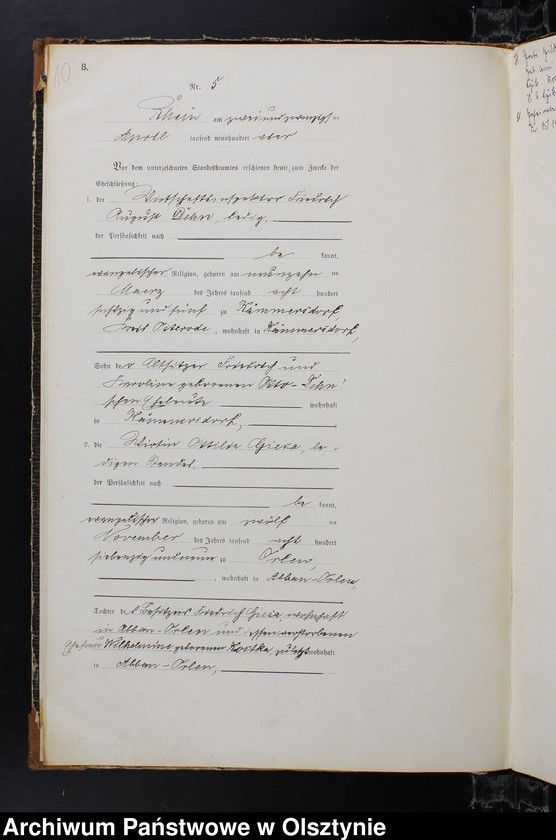 10
B.
Nr. 5
Rhein am zwei und zwanzigsten
April tausend neunhundert vier
Vor dem unterzeichneten Standesbeamten erschienen heute, zum Zwecke der
Eheschließung:
1. der Wirtschaftsinspektor Friedrich
August Dehn, ledig,
der Persönlichkeit nach
be kannt,
evangelischer Religion, geboren am neunzehn ten
Maerz des Jahres tausend acht hundert
sechzig und fünf zu Kämmersdorf,
Kreis Osterode, wohnhaft in Kämmersdorf,
Sohn der Altsitzer Friedrich und
Karoline geborenen Otto-Dehn'
schen Eheleute wohnhaft
in Kämmersdorf,
2. die Wirtin Ottilie Giesa, le-
digen Standes,
der Persönlichkeit nach
be kannt,
evangelischer Religion, geboren am zwölf ten
November des Jahres tausend acht hundert
siebenzig und neun zu Orlen,
, wohnhaft in Abbau-Orlen,
Tochter des Besitzers Friedrich Giesa, wohnhaft
in Abbau-Orlen und dessen verstorbenen
Ehefrau Wilhelmine geborenen Kostka, zuletzt wohnhaft
in Abbau-Orlen,
Archiwum Państwowe w Olsztynie